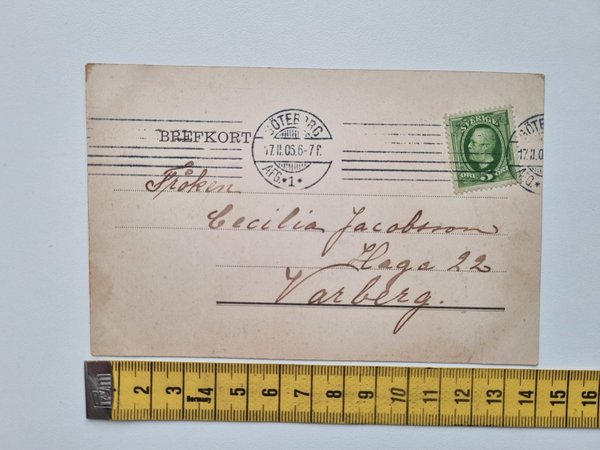 BREFKORT
GÖTEBORG
17.11.05.6-7 F.
AFG.*1*
SVERIGE
ÖRE 5
17.11.0
AFG.*
Fröken
Cecilia Jacobsson
Haga 22
Varberg.
2 3 4 5 6 7 8 9 10 11 12 13 14 15 16
Germany